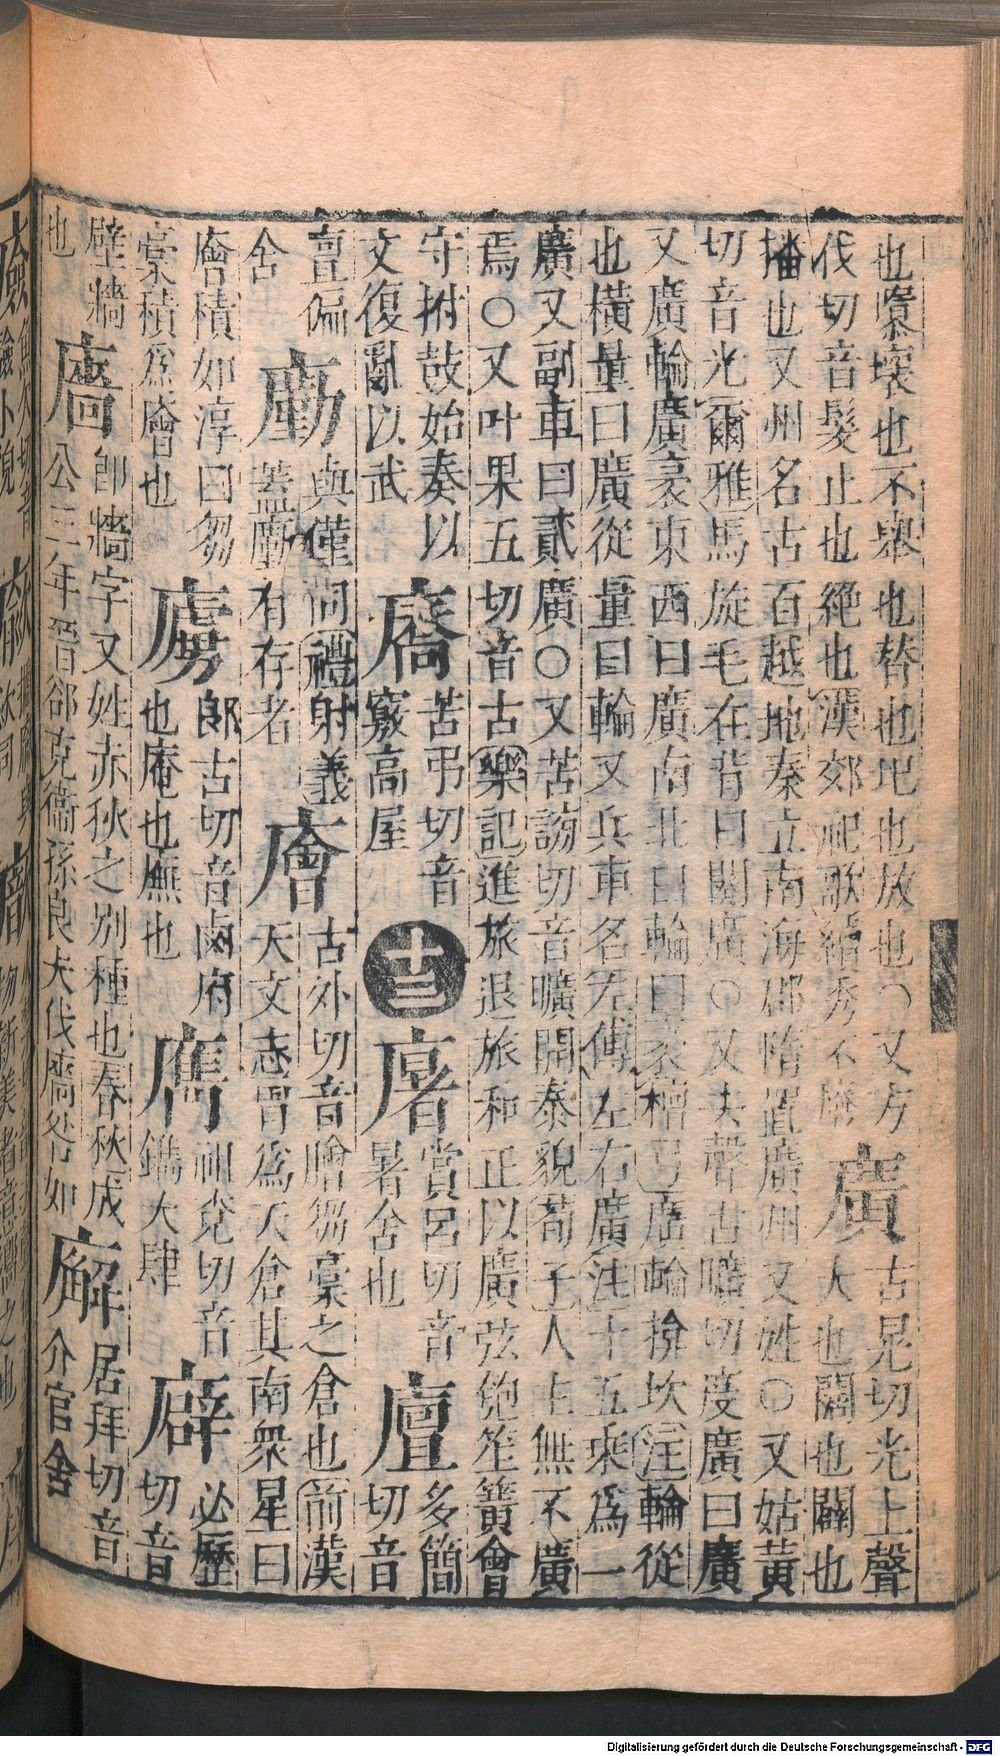 也隳壞也不舉也替也圯也放也○又方
伐切音髮止也絕也漢郊祀歌續秀不廢
廣
古晃切光上聲
大也闊也闢也
播也又州名古百越地秦立南海郡隋置廣州又姓○又姑黃
切音光爾雅馬旋毛在背曰闋廣○又去聲古曠切度廣曰廣
又廣輪廣袤東西曰廣南北曰輪曰袤檀弓廣輪揜坎注輪從
也橫量曰廣從量曰輪又兵車名左傳左右廣注十五乘為一
廣又副車曰貳廣○又苦謗切音曠開泰貌荀子人主無不廣
焉○又叶果五切音古樂記進旅退旅和正以廣弦匏笙簧會
守拊鼓始奏以
文復亂以武
廥
苦弔切音
竅高屋
十三
𢊍
賞呂切音
暑舍也
亶
多簡
切音
亶偏
舍
廑
與僅同禮射義
蓋𠪱有存者
廥
古外切音膾芻稾之倉也前漢
天文志胃為天倉其南眾星曰
廥積如淳曰芻
稾積為廥也
廬
郎古切音鹵府
也庵也廡也
㢧
祖兗切音
鐫大肆
廦
必歷
切音
壁牆
也
廧
卽牆字又姓赤狄之別種也春秋成
公三年晉郤克衞孫良夫伐廧咎如
廨
居拜切音
介官舍
Digitalisierung gefördert durch die Deutsche Forschungsgemeinschaft - DFG